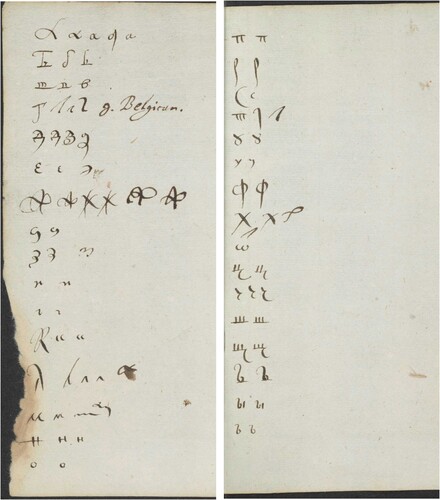 А а а а а
Б б б
в в в
г г г г g. Belgicum.
д д д д
е е е
ж ж ж ж ж ж
ѕ ѕ
з з з
и и
ı ı
К к к
л л л л л
м м м
н н н
о о
п п
р р
с с
т т т
ꙋ ꙋ
у у
ф ф
х х х
ѡ
ц ц
ч ч ч
ш ш
щ щ
ъ ъ
ы ы
ь ь